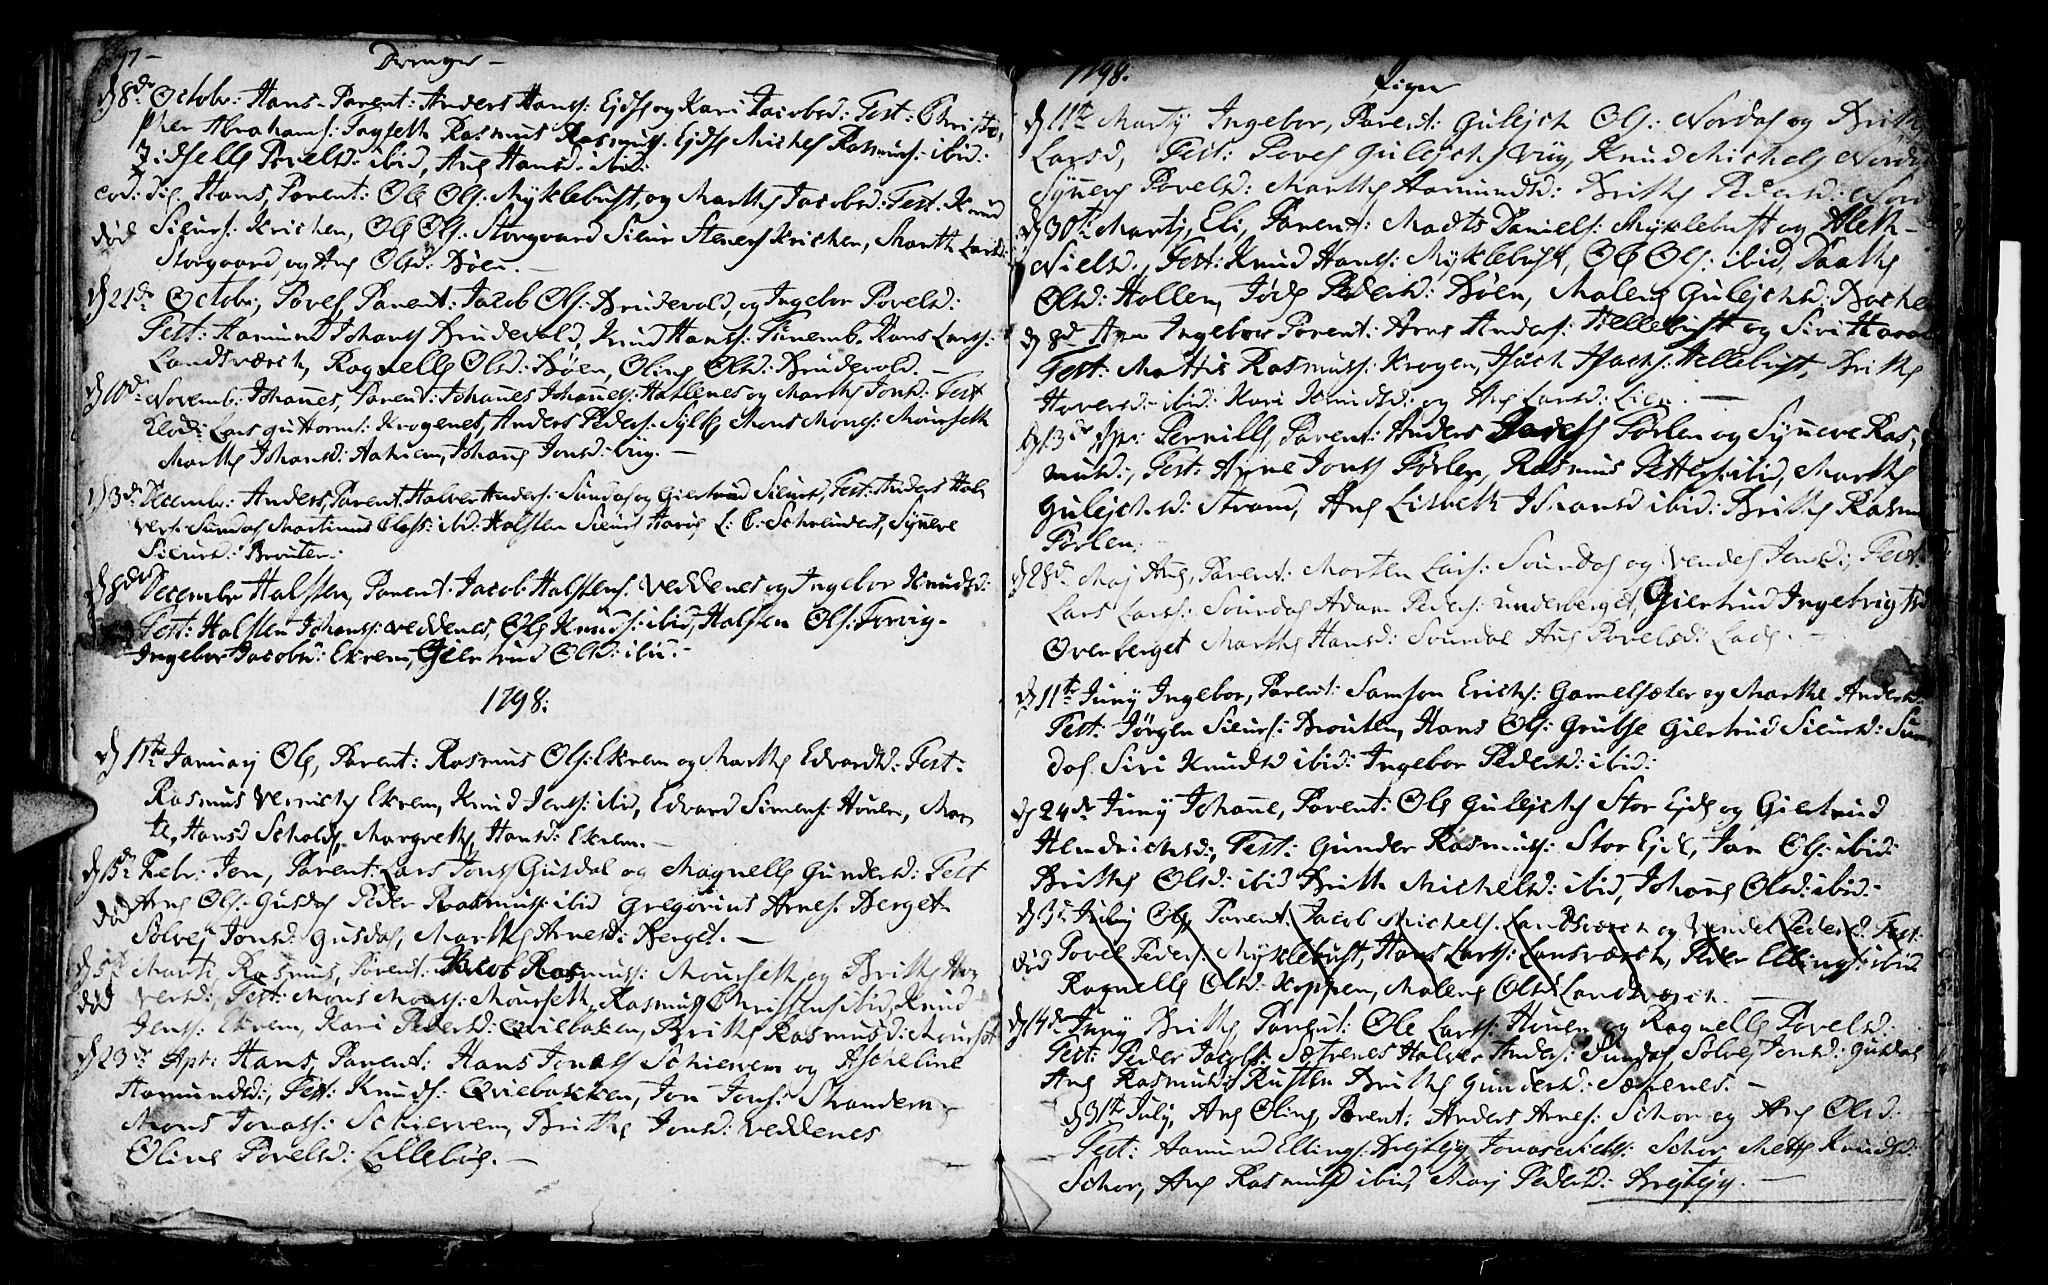 97 - Drenge -
d 8de Octobr: Hans - Parent: Anders Hans: Ejdse og Kari Jacobsd: Test: Christo,
pher Abrahams: Fagseth Rasmus Rasmuss: Ejdse Michel Rasmuss: ibid:
Zidselle Povelsd: ibid, Ane Hansd: ibid:
eod: die, Hans, Parent: Ole Ols: Myklebust, og Marthe Jacobsd: Test: Knud
død Siurs: Krichen, Ole Ols: Storgaard Siur Steners Krichen, Marthe Larsd:
Storgaard, og Ane Olsd: Bøen. -
d 21de Octobr, Povel, Parent: Jacob Ols: Brudevold, og Ingebor Povelsd:
Test: Aamund Johans Brudevold, Knud Hans: Finemb. Hans Lars:
Landsværch, Ragnelle Olsd: Bøen, Oline Olsd: Brudevold. -
d 10de Novemb: Johanes, Parent: Johanes Johanes: Hatlenes og Marthe Jonsd: Test
Klod: Lars Guttorms: Krogenes, Anders Peders: Sylte Mons Mons: Mourseth
Marthe Johansd: Aahiem, Johane Jonsd: Viig. -
d 3de Decemb: Anders, Parent: Halver Anders: Sundal og Giertrud Siursd, Test: Anders Hal,
vers: Sundal Martinus Olss: ibid: Halsten Siurs L: C: Schreuders, Synneve
Siursd: Brouten.
d 8de Decembr Halsten, Parent: Jacob Halstens: Veddenes og Ingebor Knudsd:
Test: Halsten Johans: Veddenes, Ole Knuds: ibid, Halsten Ols: Torvig -
Ingebor Jacobsd: Ekrem, Giertrud Olsd: ibid. -
1798:
d 1te January Ole, Parent: Rasmus Ols: Ekrem og Marthe Edvardsd: Test:
Rasmus Ekrem, Knud Jens: ibid, Edvard Simens: Houen, Mar,
te Hansd Schold, Margrethe Hansd: Ekrem. -
d 5de Febr: Jen, Parent: Lars Jons Gusdal og Magnelle Gundersd: Test
død Arne Ols: Gusdal Peder Rasmuss: ibid Gregorius Arnes: Berget
Solvej Jonsd: Gusdal, Marthe Arnesd: Berget. -
d 5te Martz Rasmus, Parent: Jacob Rasmuss: Mourseth og Brithe Ho,
død versd:, Test: Mons Mons: Mourseth, Rasmus Christens ibid, Knud
Jens: Ekrem, Kari Pedersd: Qviebakken, Brithe Rasmusd: Mourset
d 23de Apr: Hans, Parent: Hans Jonass Schierrem og Ascheline
Aamundsd:, Test: Knuds: Qviebacken, Jon Jons: Strandem
Mons Jonass: Schierrem, Brithe Jonsd: Veddenes
Oline Povelsd: Lillebøe. -
1798. Piger
d 11te Martij Ingebor, Parent: Gulejch Ols: Nordal og Brithe
Larsd, Test: Povel Gulejchs Viig, Knud Michels Nordal
Synneve Povelsd: Marthe Aamundsd: Brithe Pedersd: Nor
d 30te Martij, Eli, Parent: Madts Daniels: Myklebust og Aleth -
Nielsd, Test: Knud Hans: Myklebust, Ole Ols: ibid, Daathe
Olsd: Hollen, Jøde Pedersd: Bøen, Malene Gulejchsd: Boche
d 8de Apr Ingebor Parent: Arne Anders: Hellebust og Siri Haavor
Test: Mattis Rasmuss: Krogen, Isach Isachs: Hellebust, Brithe
Hoversd: ibid: Kari Knudsd: og Ane Larsd: Lien. -
d 13de Apr: Pernille, Parent: Anders Jacobs Pørlen og Synneve Ras,
musd:, Test: Arne Jons Pørlen, Rasmus Petters ibid, Marthe
Gulejchsd: Strand, Ane Lisbeth Johansd ibid: Brithe Rasm
Pørlen.
d 28de Maj Ane, Parent: Morten Lars: Soundal og Vendel Jensd:, Test:
Lars Lars: Soundal Adam Peders: underberget, Giertrud Ingebrigtsd
Ovenberget Marthe Hansd: Soundal Ane Povelsd: Lade. -
d 11te Juny Ingebor, Parent: Samson Erichs: Gamelsæter og Marthe Andersd:
Test: Jørgen Siurs: Brouten, Hans Ols: Grutse Giertrud Siursd: Sun
dal Siri Knudsd ibid: Ingebor Pedersd: ibid:
d 24de Juny Johane, Parent: Ole Gulejchs Stor Ejde og Giertrud
Hendrichsd:, Test: Gunder Rasmuss: Stor Ejde, Jan Ols: ibid:
Brithe Olsd: ibid Brithe Michelsd: ibid, Johane Olsd: ibid:
d 3de July Ole Parent: Jacob Michels. Landsværch og Vendel Pedersd: Test:
død Povel Peders Myklebust, Hans Lars: Lansværch, Peder Ellings: ibid
Ragnelle Olsd: Koppen, Malene Olsd: Landsværch. -
d 14de Juny Brithe, Parent: Ole Lars: Houen og Ragnelle Povelsd:
Test: Peder Jacobs: Sætrenes Halver Anders: Sundal Solvej Jonsd: Gusdal
Ane Rasmusd: Rusten Brithe Gundersd: Sætrenes. -
d 31te July, Ane Oline, Parent: Anders Arnes: Schor og Ane Olsd:
Test: Aamund Ellings: Brejtejg Jonas Schor, Mette Knudsd:
Schor, Ane Rasmusd ibid, Marj Pedersd: Brejtejg. -